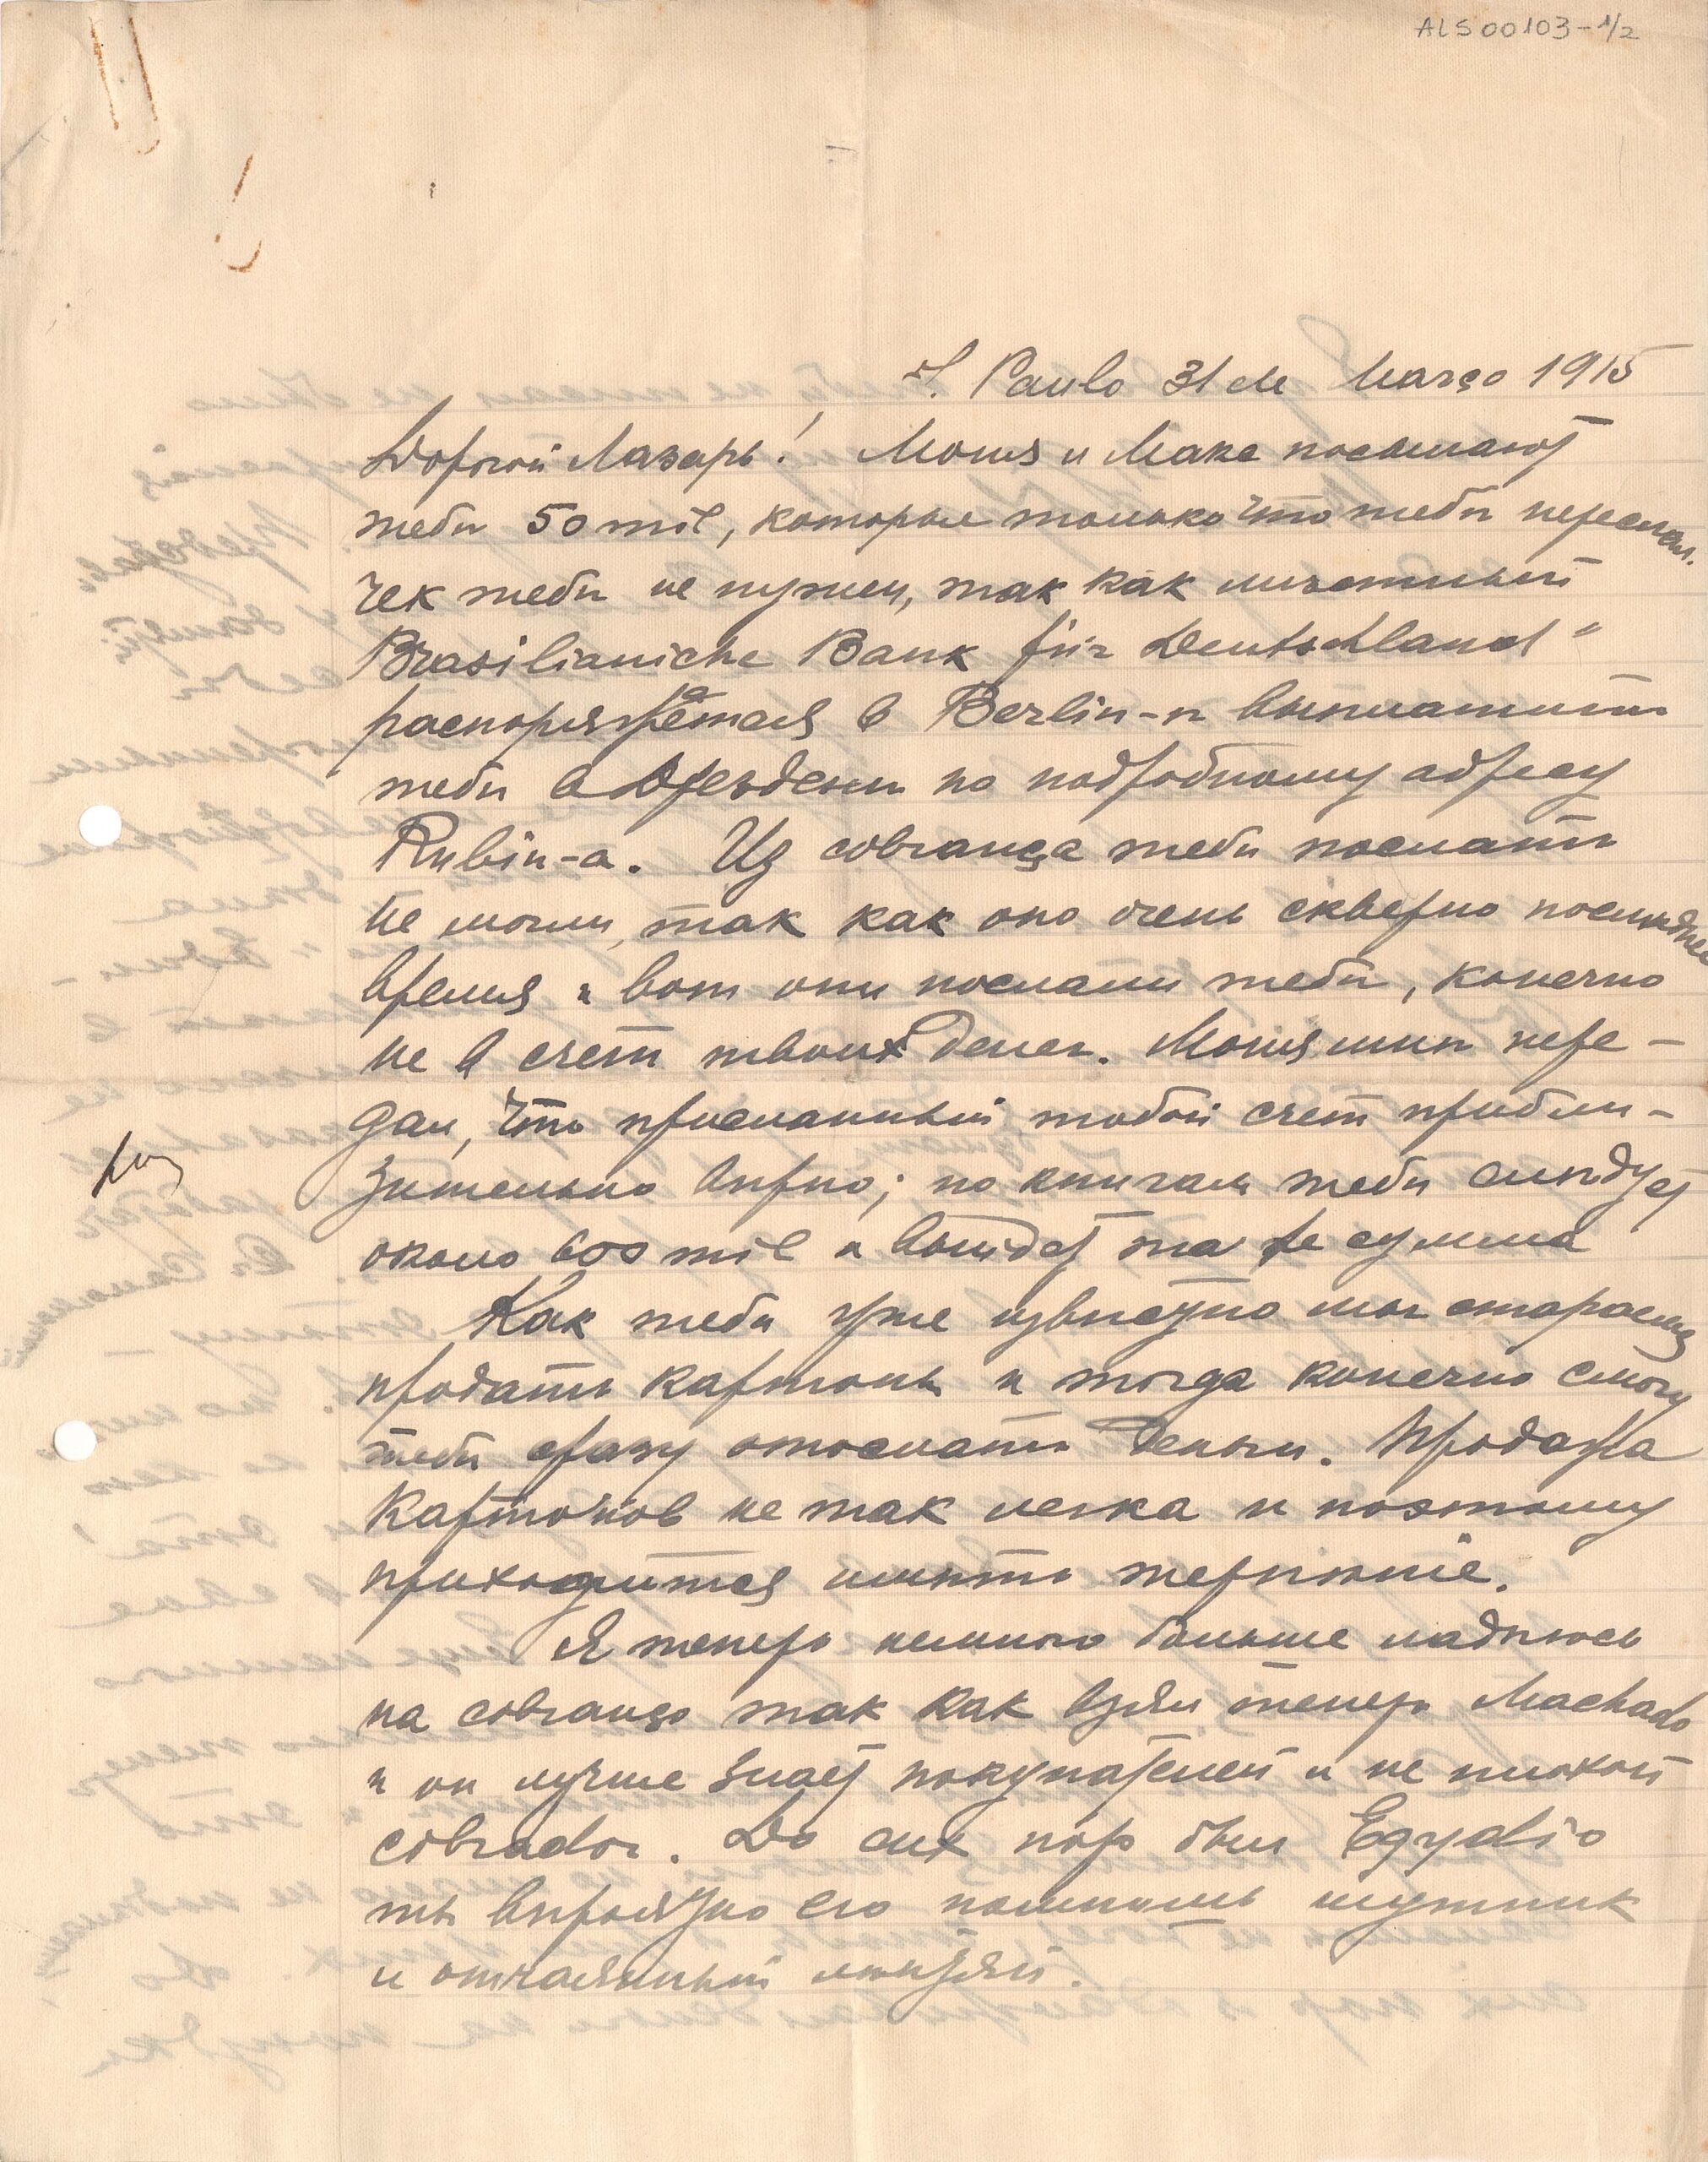 ALS 00103-1/2
S. Paulo 31 de Março 1915
Дорогой Лазарь! Моня и Макс посылают
тебѣ 50 mil, которые только что тебѣ переслал.
Чек тебѣ не нужен, так как мѣстный
Brasilianiche Bank für Deutschland"
распорядится в Berlin-ѣ выплатить
тебѣ в Дрездени по подробному адресу
Rubin-а. Из cobrança тебѣ послать
не могли, так как оно очень скверно послѣднее
время и вот они послали тебѣ, конечно
не в счет твоих денег. Моня мнѣ пере-
дал, что присланный тобой счет прибли-
зительно вѣрно; по книгам тебѣ слѣдует
около 600 mil и выйдет та же сумма
Как тебѣ уже извѣстно мы стараемся
продать картоны и тогда конечно смогу
тебѣ сразу отослать деньги. Продажа
картонов не так легка и поэтому
приходится имѣть терпѣніе.
Я теперь немного больше надѣюсь
на cobrança так как взял теперь Machado
и он лучше знает покупателей и не плохой
cobrador. До сих пор был Egydio
ты вѣроятно его помнишь шутник
и отчаянный лѣнтяй.